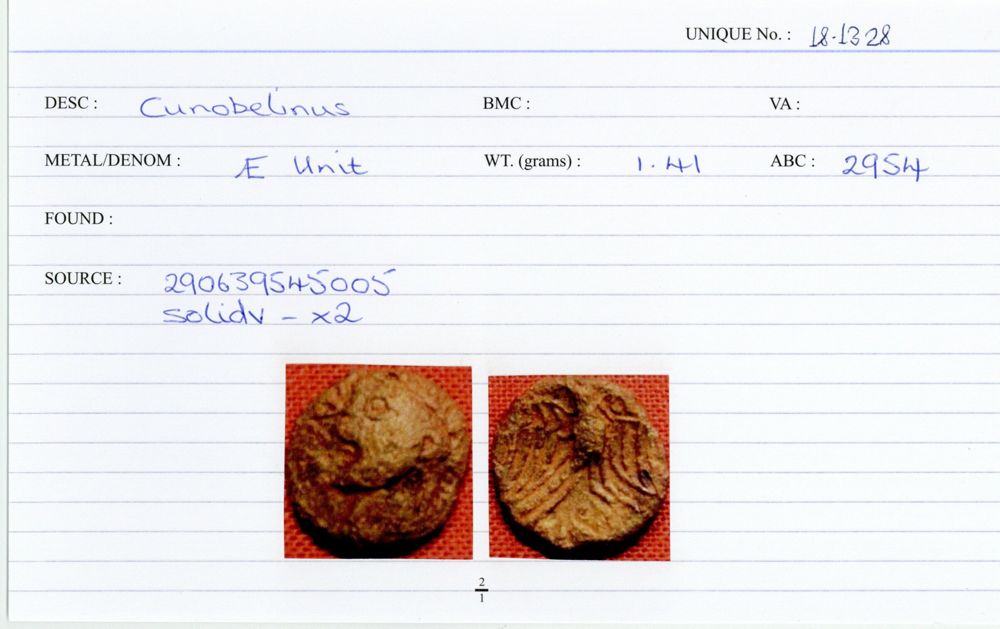 UNIQUE No. : 18-1328
DESC : Cunobelinus BMC : VA :
METAL/DENOM : Æ Unit WT. (grams) : 1.41 ABC : 2954
FOUND :
SOURCE : 290639545005
solidv - x2
2
1